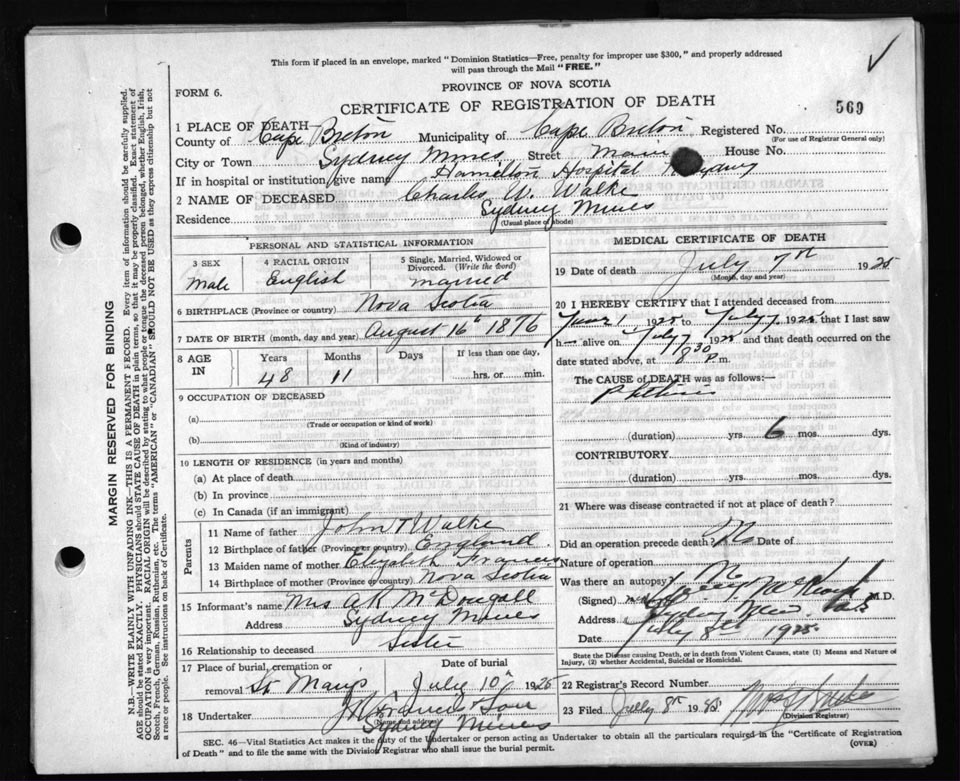 This form if placed in an envelope, marked "Dominion Statistics—Free, penalty for improper use $300," and properly addressed
will pass through the Mail "FREE."
FORM 6.
PROVINCE OF NOVA SCOTIA
CERTIFICATE OF REGISTRATION OF DEATH
569
1 PLACE OF DEATH
County of Cape Breton Municipality of Cape Breton Registered No.
(For use of Registrar General only)
City or Town Sydney Mines Street Main House No.
If in hospital or institution, give name Hamilton Hospital N. Sydney
2 NAME OF DECEASED Charles W. Walke
Residence Sydney Mines
(Usual place of abode)
PERSONAL AND STATISTICAL INFORMATION
3 SEX Male
4 RACIAL ORIGIN English
5 Single, Married, Widowed or Divorced. (Write the word) married
6 BIRTHPLACE (Province or country) Nova Scotia
7 DATE OF BIRTH (month, day and year) August 16th 1876
8 AGE IN Years 48 Months 11 Days If less than one day, hrs. or min.
9 OCCUPATION OF DECEASED
(a)
(Trade or occupation or kind of work)
(b)
(Kind of industry)
10 LENGTH OF RESIDENCE (in years and months)
(a) At place of death
(b) In province
(c) In Canada (if an immigrant)
Parents
11 Name of father John T Walke
12 Birthplace of father (Province or country) England
13 Maiden name of mother Elizabeth Francis
14 Birthplace of mother (Province or country) Nova Scotia
15 Informant's name Mrs A R McDougall
Address Sydney Mines
16 Relationship to deceased Sister
17 Place of burial, cremation or removal St Marys
Date of burial July 10th 1925
18 Undertaker J W Francis & Son
(Name and address)
Sydney Mines
MEDICAL CERTIFICATE OF DEATH
19 Date of death July 7th 1925
(Month, day and year)
20 I HEREBY CERTIFY that I attended deceased from
June 1 1925 to July 7 1925 that I last saw
h— alive on July 7 1925 and that death occurred on the
date stated above, at 8 30 P.m.
The CAUSE of DEATH was as follows:—
Phthisis
(duration) yrs. 6 mos. dys.
CONTRIBUTORY
(duration) yrs. mos. dys.
21 Where was disease contracted if not at place of death?
Did an operation precede death? No Date of
Nature of operation
Was there an autopsy? No
(Signed) M.D.
Address Sydney Mines
Date July 8th 1925
State the Disease causing Death, or in death from Violent Causes, state (1) Means and Nature of
Injury, (2) whether Accidental, Suicidal or Homicidal.
22 Registrar's Record Number
23 Filed July 8th 1925
(Division Registrar)
SEC. 46—Vital Statistics Act makes it the duty of the Undertaker or person acting as Undertaker to obtain all the particulars required in the "Certificate of Registration
of Death" and to file the same with the Division Registrar who shall issue the burial permit. (OVER)
MARGIN RESERVED FOR BINDING
N.B.—WRITE PLAINLY WITH UNFADING INK—THIS IS A PERMANENT RECORD. Every item of information should be carefully supplied.
AGE should be stated EXACTLY. PHYSICIANS should STATE CAUSE OF DEATH in plain terms, so that it may be properly classified. Exact statement of
OCCUPATION is very important. RACIAL ORIGIN will be described by stating to what people or tongue the deceased person belonged, whether English, Irish,
Scotch, French, German, Russian, Ruthenian, etc. The terms "AMERICAN" or "CANADIAN" SHOULD NOT BE USED as they express citizenship but not
a race or people. See instructions on back of Certificate.